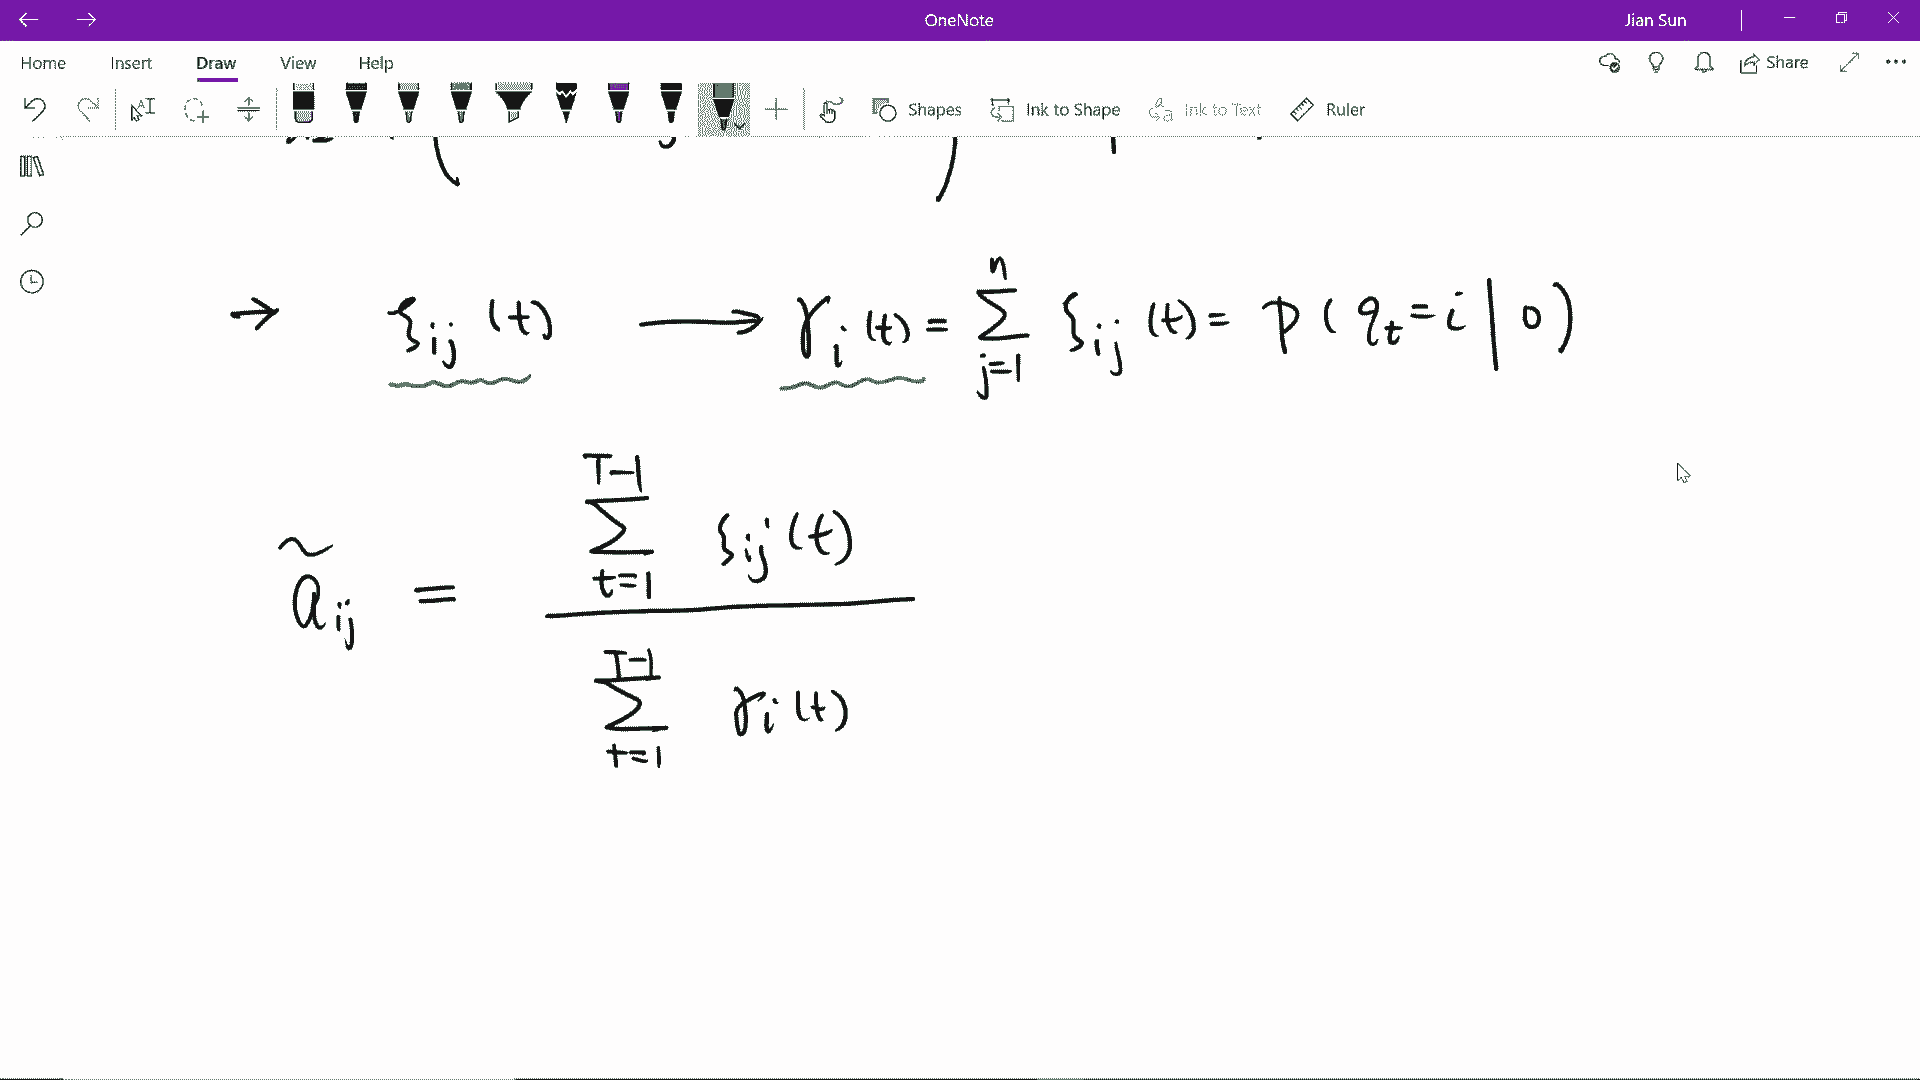 OneNote
Jian Sun
Home Insert Draw View Help
Share
Shapes Ink to Shape Ink to Text Ruler
→ ξij (t) ⟶ γi (t) = ∑ⁿj=1 ξij (t) = p ( qt = i | O )
T-1
∑ ξij (t)
t=1
ãij =
T-1
∑ γi (t)
t=1